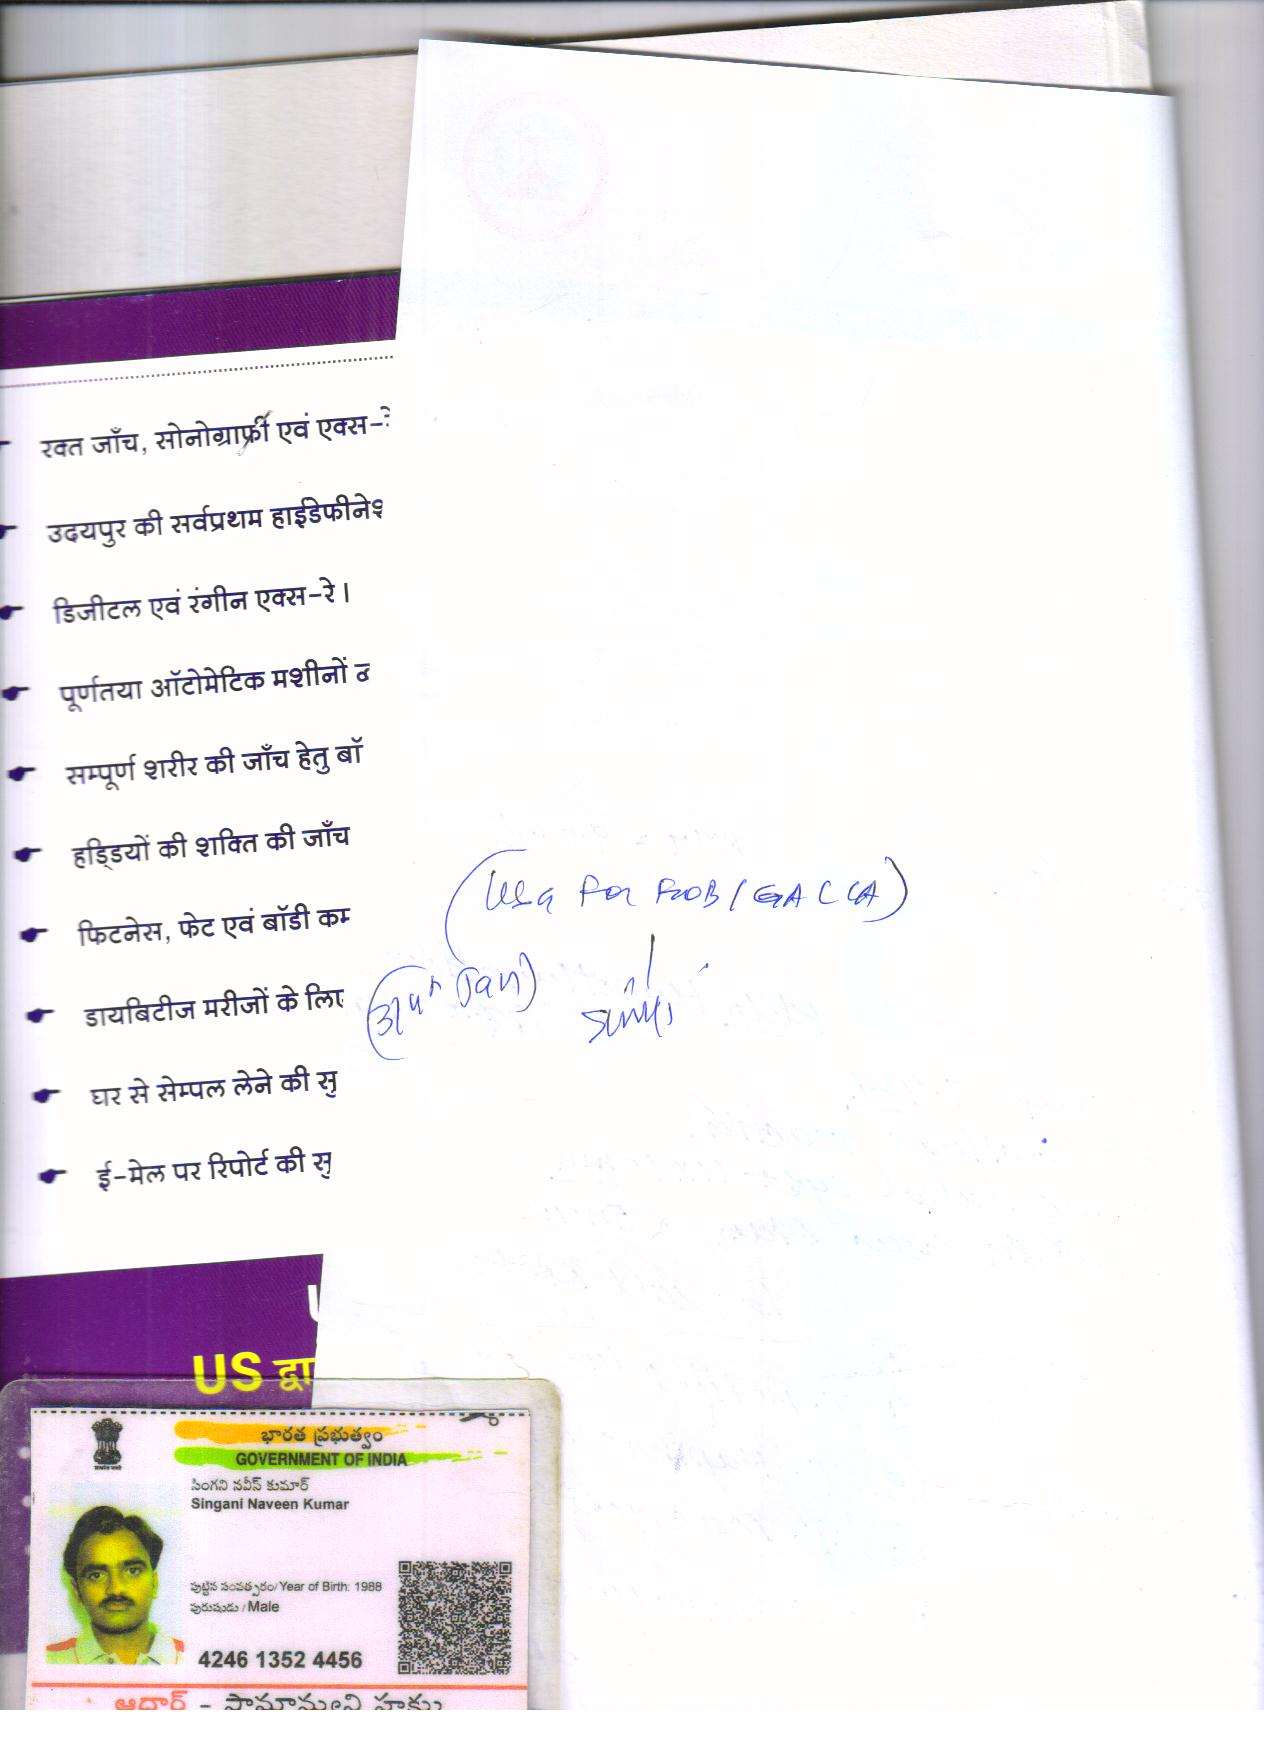 रक्त जाँच, सोनोग्राफी एवं एक्स-रे
उदयपुर की सर्वप्रथम हाईडेफीनेश
डिजीटल एवं रंगीन एक्स-रे।
पूर्णतया ऑटोमेटिक मशीनों
सम्पूर्ण शरीर की जाँच हेतु बॉ
हड्डियों की शक्ति की जाँच
फिटनेस, फेट एवं बॉडी कम
डायबिटीज मरीजों के लिए
घर से सेम्पल लेने की सु
ई-मेल पर रिपोर्ट की सु
(USG For FROB / GACCA)
US द्वा
భారత ప్రభుత్వం
GOVERNMENT OF INDIA
సింగని నవీన్ కుమార్
Singani Naveen Kumar
పుట్టిన సంవత్సరం/Year of Birth: 1988
పురుషుడు / Male
4246 1352 4456
ఆధార్ - సామాన్యుని హక్కు